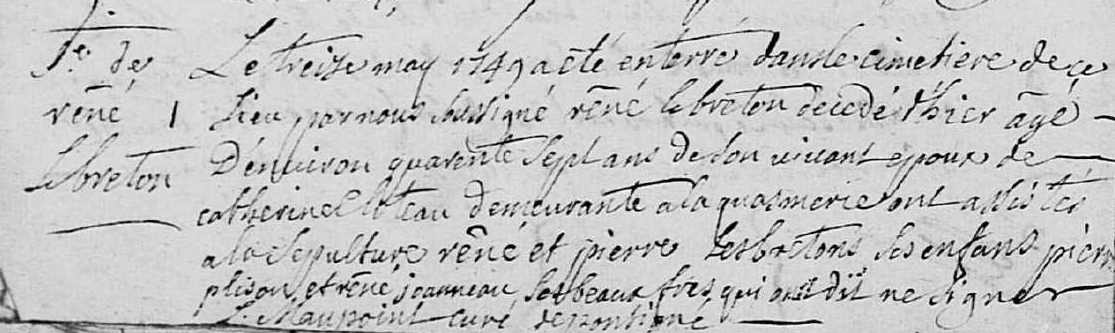 Sre de
réné 1
lebreton
Le treize may 1749 a eté énterré dans le cimetiere de ce
Lieu par nous soussigné réné lebreton décedé d'hier âgé
D'énuiron quarente Sept ans de son viuant epoux de
catherine loteau demeurante a la quosmerie ont assistés
a la Sepulture réné et pierre Lesbretons Ses enfans pierre
plison et réné joanneau Ses beaux frés qui ont dit ne Signer
L. Maupoint curé depontigné